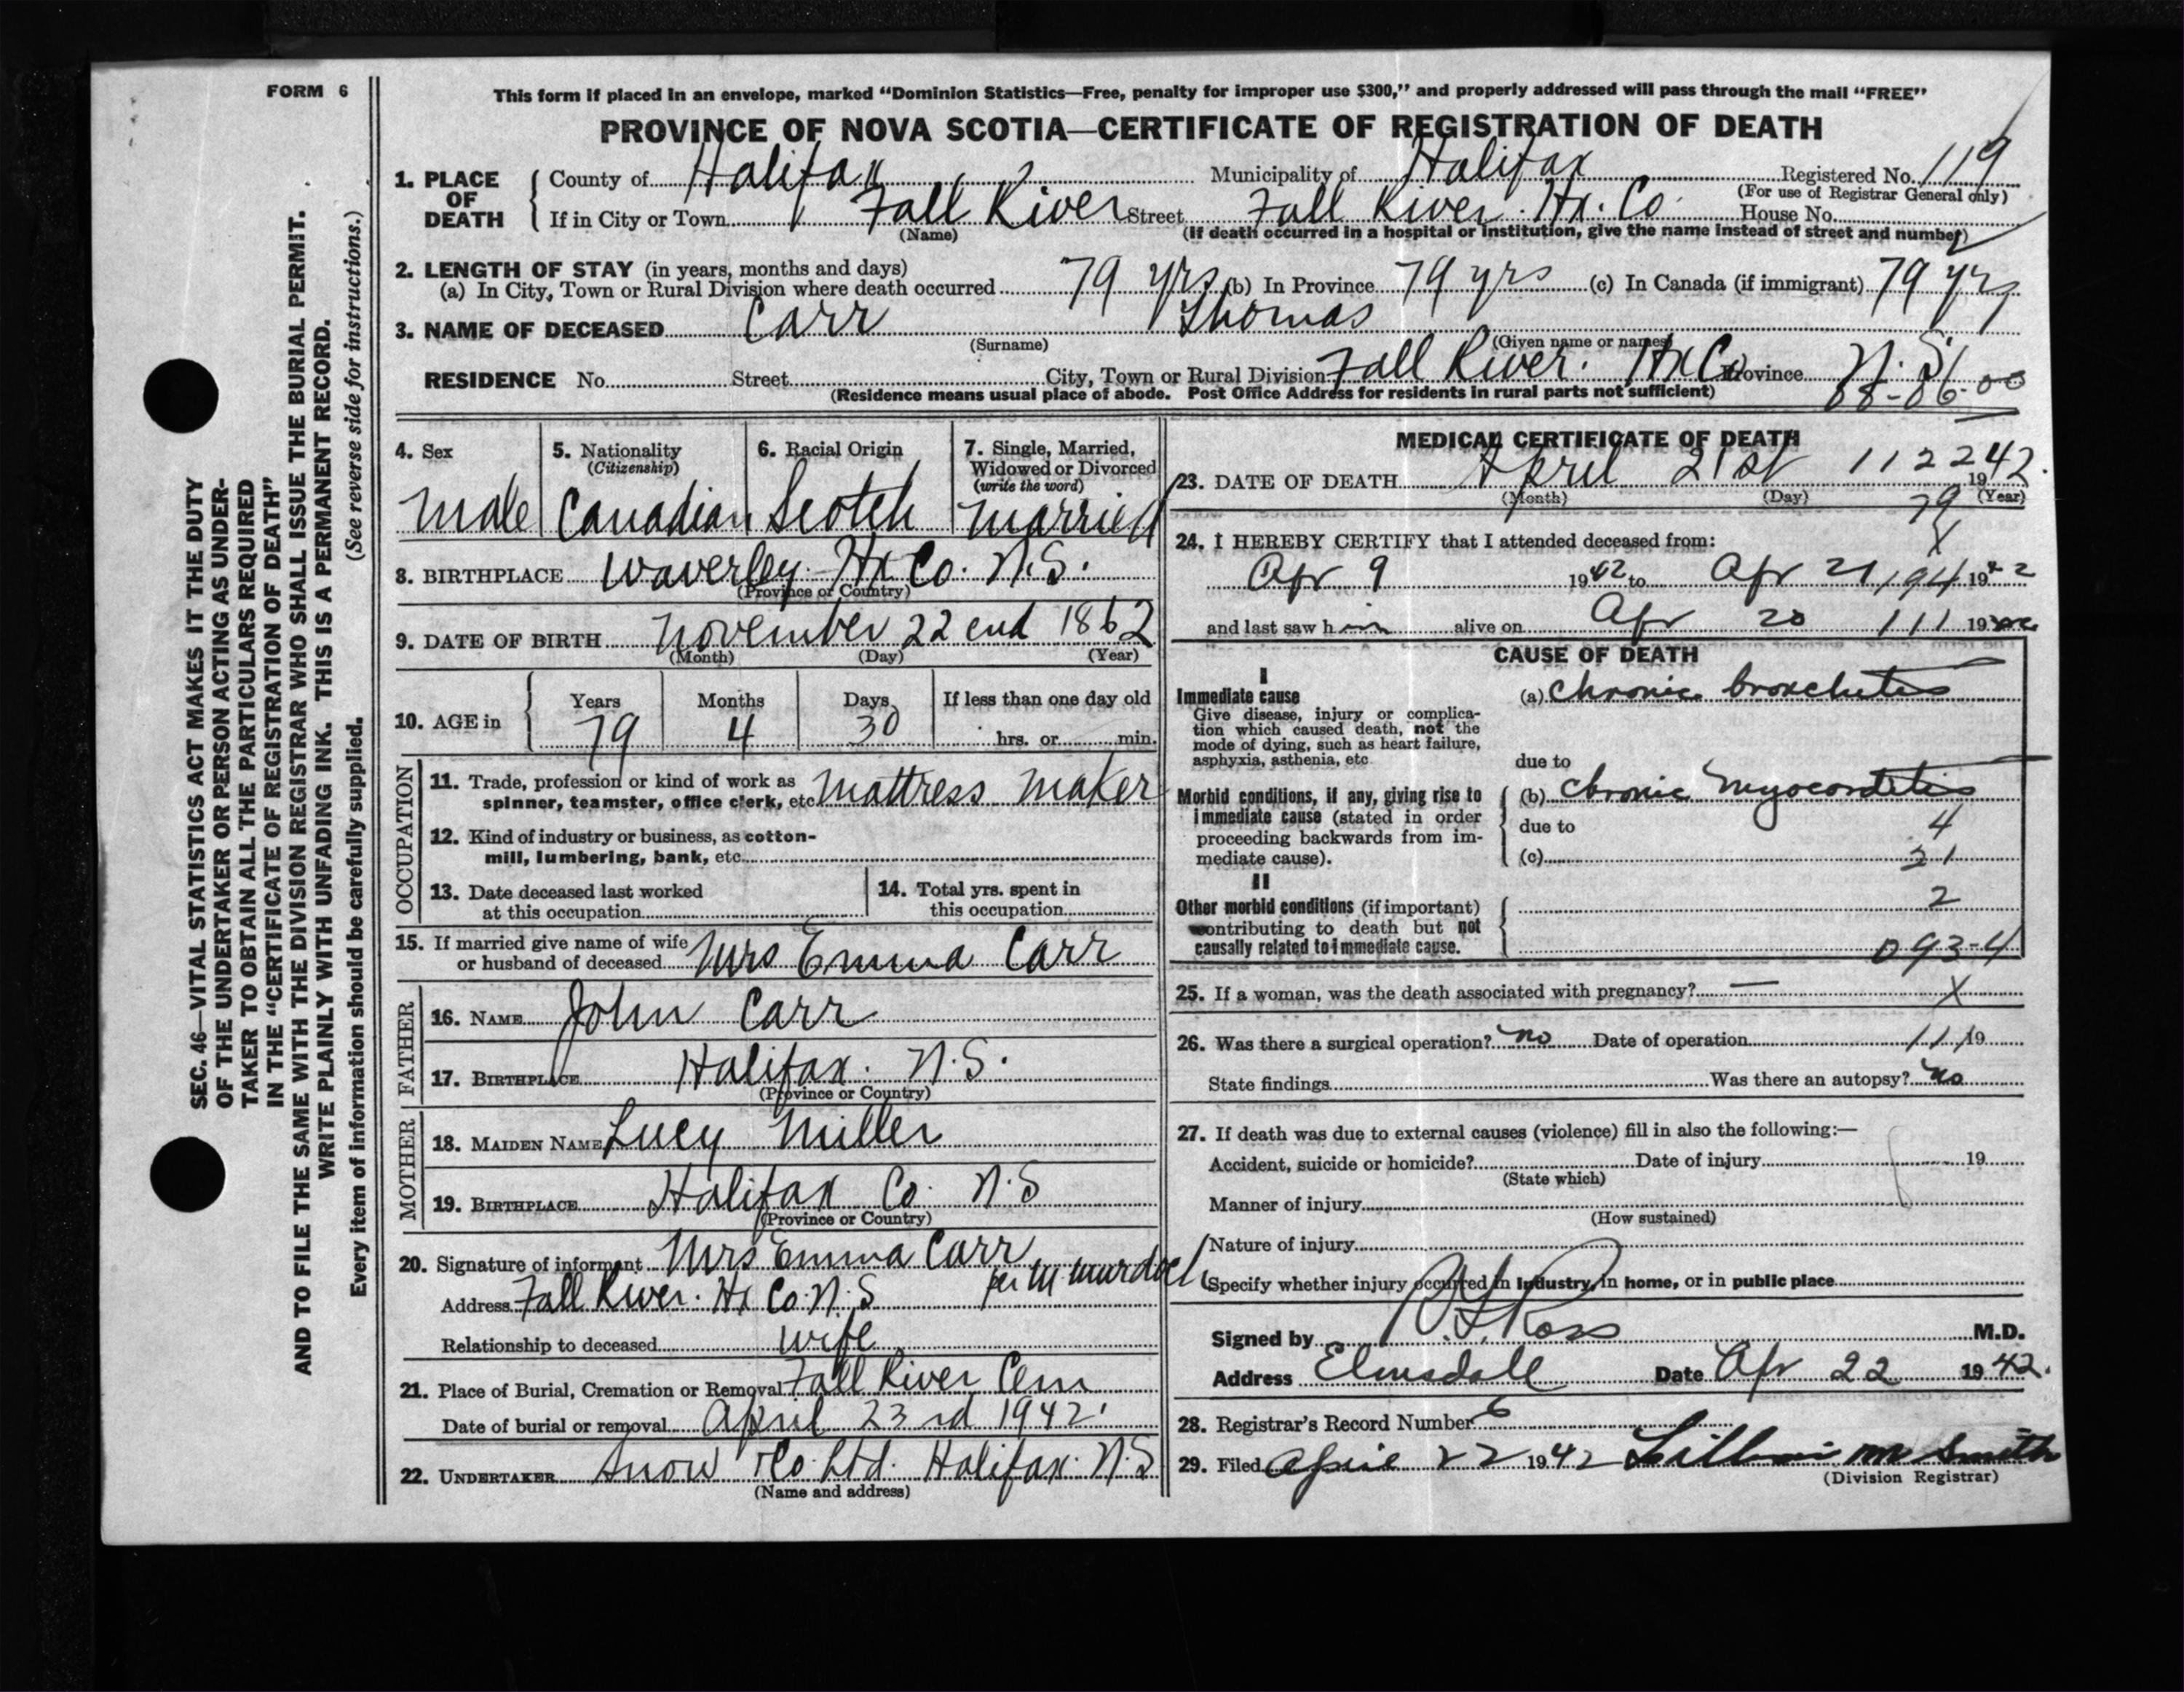 FORM 6
This form if placed in an envelope, marked "Dominion Statistics—Free, penalty for improper use $300," and properly addressed will pass through the mail "FREE"
PROVINCE OF NOVA SCOTIA—CERTIFICATE OF REGISTRATION OF DEATH
1. PLACE OF DEATH
County of Halifax Municipality of Halifax Registered No. 119
(For use of Registrar General only)
If in City or Town Fall River Street Fall River. Hx. Co. House No.
(Name) (If death occurred in a hospital or institution, give the name instead of street and number)
2. LENGTH OF STAY (in years, months and days)
(a) In City, Town or Rural Division where death occurred 79 yrs (b) In Province 79 yrs (c) In Canada (if immigrant) 79 yrs
3. NAME OF DECEASED Carr Thomas
(Surname) (Given name or names)
RESIDENCE No. Street City, Town or Rural Division Fall River. Hx Co Province N.S.
(Residence means usual place of abode. Post Office Address for residents in rural parts not sufficient) 08-06-00
4. Sex
male
5. Nationality
(Citizenship)
Canadian
6. Racial Origin
Scotch
7. Single, Married,
Widowed or Divorced
(write the word)
married
8. BIRTHPLACE Waverley Hx Co. N.S.
(Province or Country)
9. DATE OF BIRTH November 22end 1862
(Month) (Day) (Year)
10. AGE in
Years Months Days If less than one day old
79 4 30 hrs. or min.
OCCUPATION
11. Trade, profession or kind of work as
spinner, teamster, office clerk, etc. Mattress Maker
12. Kind of industry or business, as cotton-
mill, lumbering, bank, etc.
13. Date deceased last worked
at this occupation
14. Total yrs. spent in
this occupation
15. If married give name of wife
or husband of deceased Mrs Emma Carr
FATHER
16. NAME John Carr
17. BIRTHPLACE Halifax. N.S.
(Province or Country)
MOTHER
18. MAIDEN NAME Lucy Miller
19. BIRTHPLACE Halifax Co. N.S
(Province or Country)
20. Signature of informant Mrs Emma Carr
per M Murdoch
Address Fall River. Hx Co. N.S
Relationship to deceased wife
21. Place of Burial, Cremation or Removal Fall River Cem
Date of burial or removal April 23rd 1942
22. UNDERTAKER Snow Co. Ltd. Halifax. N.S
(Name and address)
MEDICAL CERTIFICATE OF DEATH
23. DATE OF DEATH April 21st 11 22 1942.
(Month) (Day) (Year)
79
X
24. I HEREBY CERTIFY that I attended deceased from:
Apr 9 1942 to Apr 21, 194 19
and last saw him alive on Apr 20 111 19
CAUSE OF DEATH
I
Immediate cause
Give disease, injury or complica-
tion which caused death, not the
mode of dying, such as heart failure,
asphyxia, asthenia, etc
(a) Chronic bronchitis
due to
Morbid conditions, if any, giving rise to
immediate cause (stated in order
proceeding backwards from im-
mediate cause).
(b) Chronic Myocarditis
due to 4
(c) 21
II
Other morbid conditions (if important)
contributing to death but not
causally related to immediate cause.
2
093-4
25. If a woman, was the death associated with pregnancy? — X
26. Was there a surgical operation? no Date of operation 11 19
State findings Was there an autopsy? no
27. If death was due to external causes (violence) fill in also the following:—
Accident, suicide or homicide? Date of injury 19
(State which)
Manner of injury
(How sustained)
Nature of injury
Specify whether injury occurred in Industry, in home, or in public place
Signed by Ross M.D.
Address Elmsdale Date Apr 22 1942.
28. Registrar's Record Number 6
29. Filed April 22 1942 Lillian M Smith
(Division Registrar)
SEC. 46—VITAL STATISTICS ACT MAKES IT THE DUTY
OF THE UNDERTAKER OR PERSON ACTING AS UNDER-
TAKER TO OBTAIN ALL THE PARTICULARS REQUIRED
IN THE "CERTIFICATE OF REGISTRATION OF DEATH"
AND TO FILE THE SAME WITH THE DIVISION REGISTRAR WHO SHALL ISSUE THE BURIAL PERMIT.
WRITE PLAINLY WITH UNFADING INK. THIS IS A PERMANENT RECORD.
Every item of information should be carefully supplied. (See reverse side for instructions.)